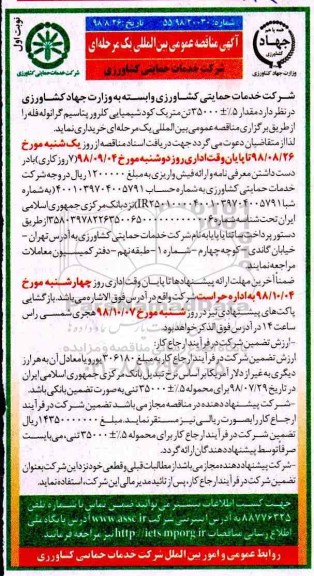 شماره: ۵۵/۹۸/۲۰۰۳۰ تاریخ: ۹۸/۸/۲۶
نوبت اول
آگهی مناقصه عمومی بین‌المللی یک مرحله‌ای
شرکت خدمات حمایتی کشاورزی
جهاد
وزارت جهاد کشاورزی
شرکت خدمات حمایتی کشاورزی
شرکت خدمات حمایتی کشاورزی وابسته به وزارت جهاد کشاورزی
در نظر دارد مقدار ۵٪± ۳۵۰۰۰ تن متریک کود شیمیایی کلرور پتاسیم گرانوله فله را
از طریق برگزاری مناقصه عمومی بین المللی یک مرحله ای خریداری نماید.
لذا از متقاضیان دعوت می گردد جهت دریافت اسناد مناقصه از روز یک شنبه مورخ
۹۸/۰۸/۲۶ تا پایان وقت اداری روز دوشنبه مورخ ۹۸/۰۹/۰۴ (۷ روز کاری) با در
دست داشتن معرفی نامه و ارائه فیش واریزی به مبلغ ۱۲۰۰۰۰۰ ریال در وجه شرکت
خدمات حمایتی کشاورزی به شماره حساب ۴۰۰۱۰۳۹۷۰۴۰۰۵۷۹۱ (به شماره
نزد بانک مرکزی جمهوری اسلامی
دستور پرداخت
به آدرس تهران -
خیابان گاندی - کوچه چهارم - شماره ۱ - طبقه نهم - دفتر کمیسیون معاملات
مراجعه نمایند.
ضمناً آخرین مهلت ارائه پیشنهادها تا پایان وقت اداری روز چهارشنبه مورخ
۹۸/۱۰/۰۴ به اداره حراست شرکت واقع در آدرس فوق الاشاره می باشد. بازگشایی
پاکت های پیشنهادی نیز در روز شنبه مورخ ۹۸/۱۰/۰۷ هجری شمسی راس
ساعت ۱۴ در آدرس فوق الذکر خواهد بود.
-ارزش تضمین شرکت در فرآیند ارجاع کار:
ارزش تضمین شرکت در فرآیند ارجاع کار به مبلغ ۳۰۶۱۸۰ یورو یا معادل آن به هر ارز
دیگری به غیر از دلار آمریکا بر اساس نرخ تبدیل بانک مرکزی جمهوری اسلامی ایران
در تاریخ ۹۸/۰۷/۲۹ برای محموله ۵٪± ۳۵۰۰۰ تنی به صورت تضمین بانکی باشد.
-شرکت پیشنهاد دهنده در مناقصه مجاز می باشد تضمین شرکت در فرآیند
ارجاع کار را بصورت ریالی نیز مستقر نماید. مبلغ ۱۴۳۵۰۰۰۰۰۰۰ ریال
تضمین شرکت در فرآیند ارجاع کار برای محموله ۵٪± ۳۵۰۰۰ تنی، می بایست
صرفاً توسط پیشنهاد دهندگان ارائه گردد.
-شرکت پیشنهاد دهنده مجاز می باشد از مطالبات قبلی و قطعی خود نزد این شرکت بعنوان
تضمین شرکت در فرآیند ارجاع کار، پس از تائید مدیر مالی این شرکت، استفاده نماید.
جهت کسب اطلاعات بیشتر می توانید ضمن تماس با شماره تلفن
۸۸۷۷۶۳۲۵ به آدرس اینترنتی شرکت www.assc.ir و آدرس پایگاه ملی
اطلاع رسانی مناقصات http://iets.mporg.ir نیز مراجعه فرمایند.
روابط عمومی و امور بین الملل شرکت خدمات حمایتی کشاورزی